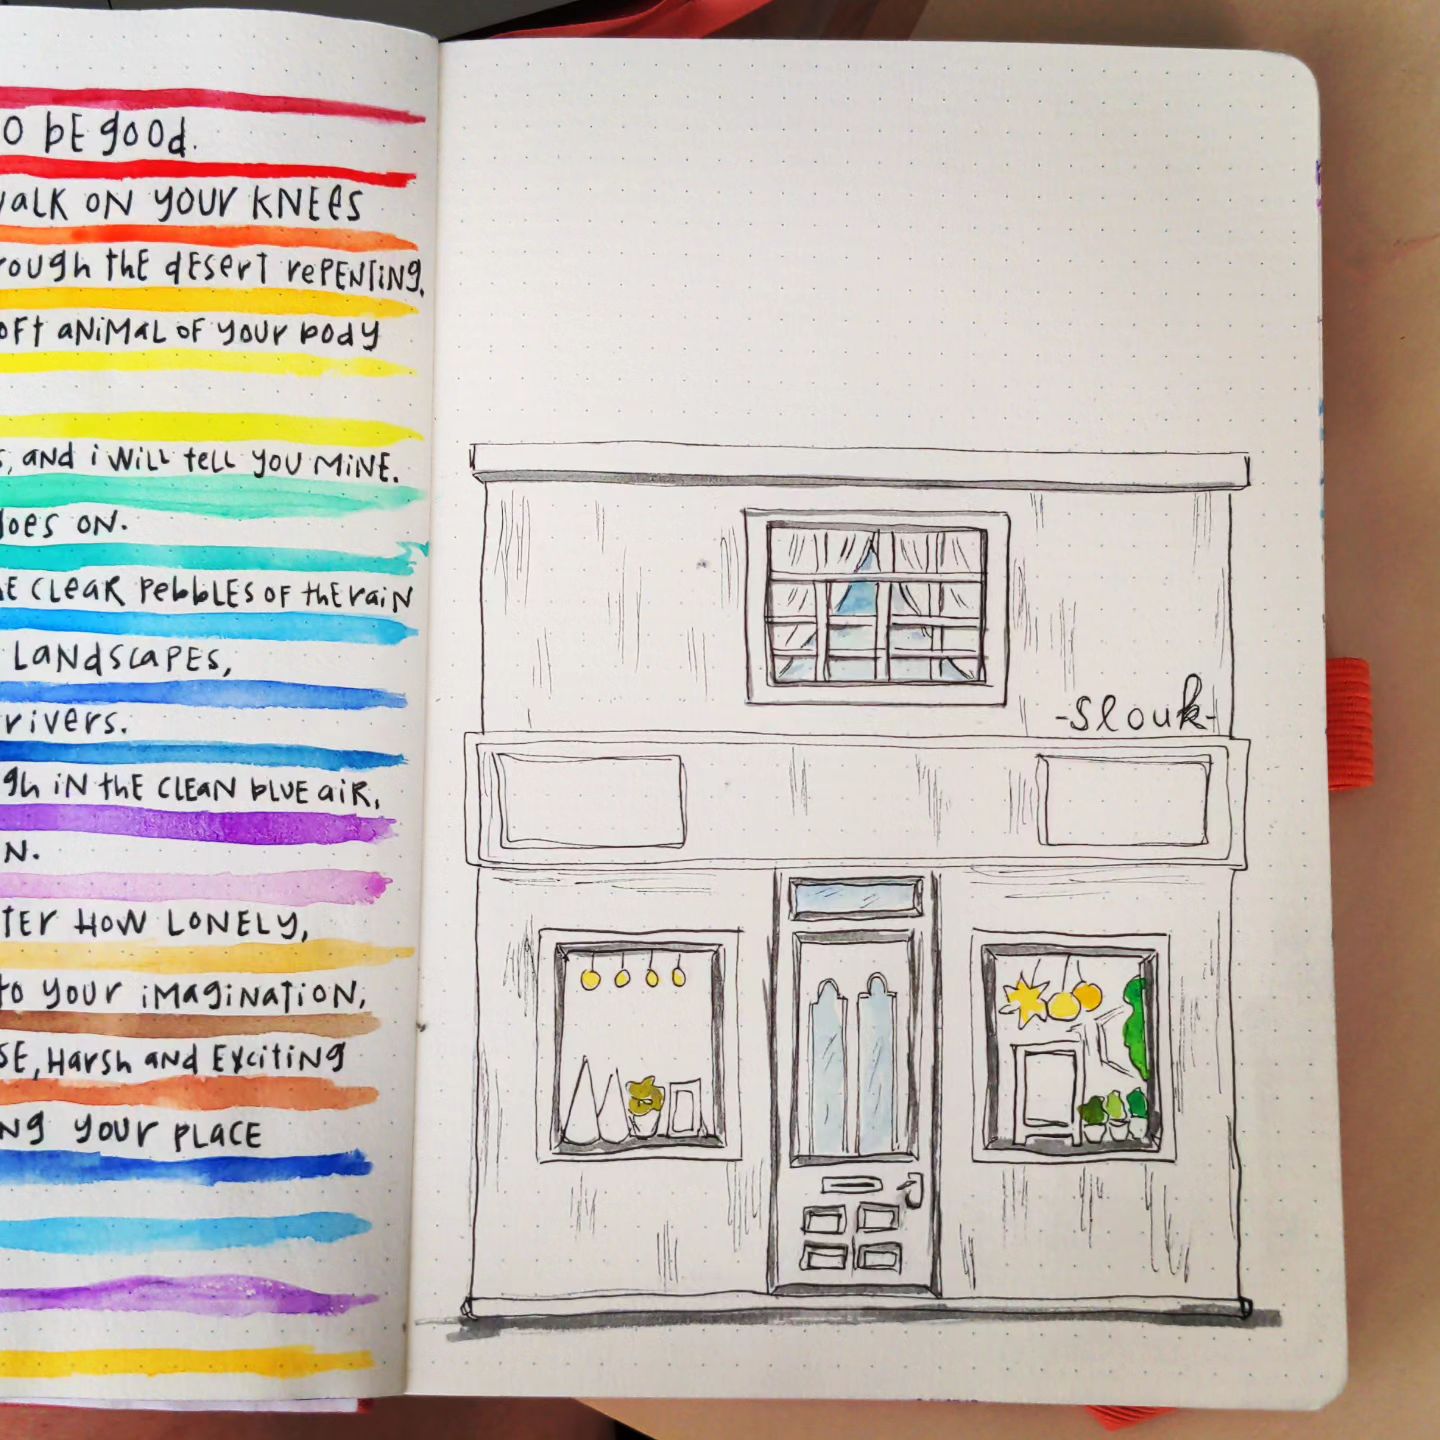 O bE good.
WALK ON YOUR KNEES
rough thE dEsErT rePENTiNg.
oFt aNiMaL oF your body
s, ANd i WiLL tELL yOU MiNE.
goes ON.
hE CLEaR PEbbLES OF thE raiN
LaNdscaPES,
rivers.
gh iN thE CLEaN bLUE aiR,
N.
TTER HOW LONELy,
to yOUr iMagiNaTiON,
SE, Harsh aNd Exciting
Ng yOUr PLaCE
-Slouk-